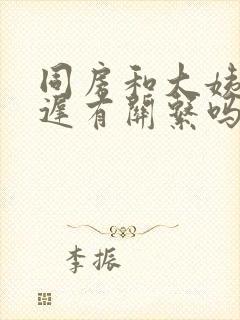 同房和大姨
遲有關繫吗
李振